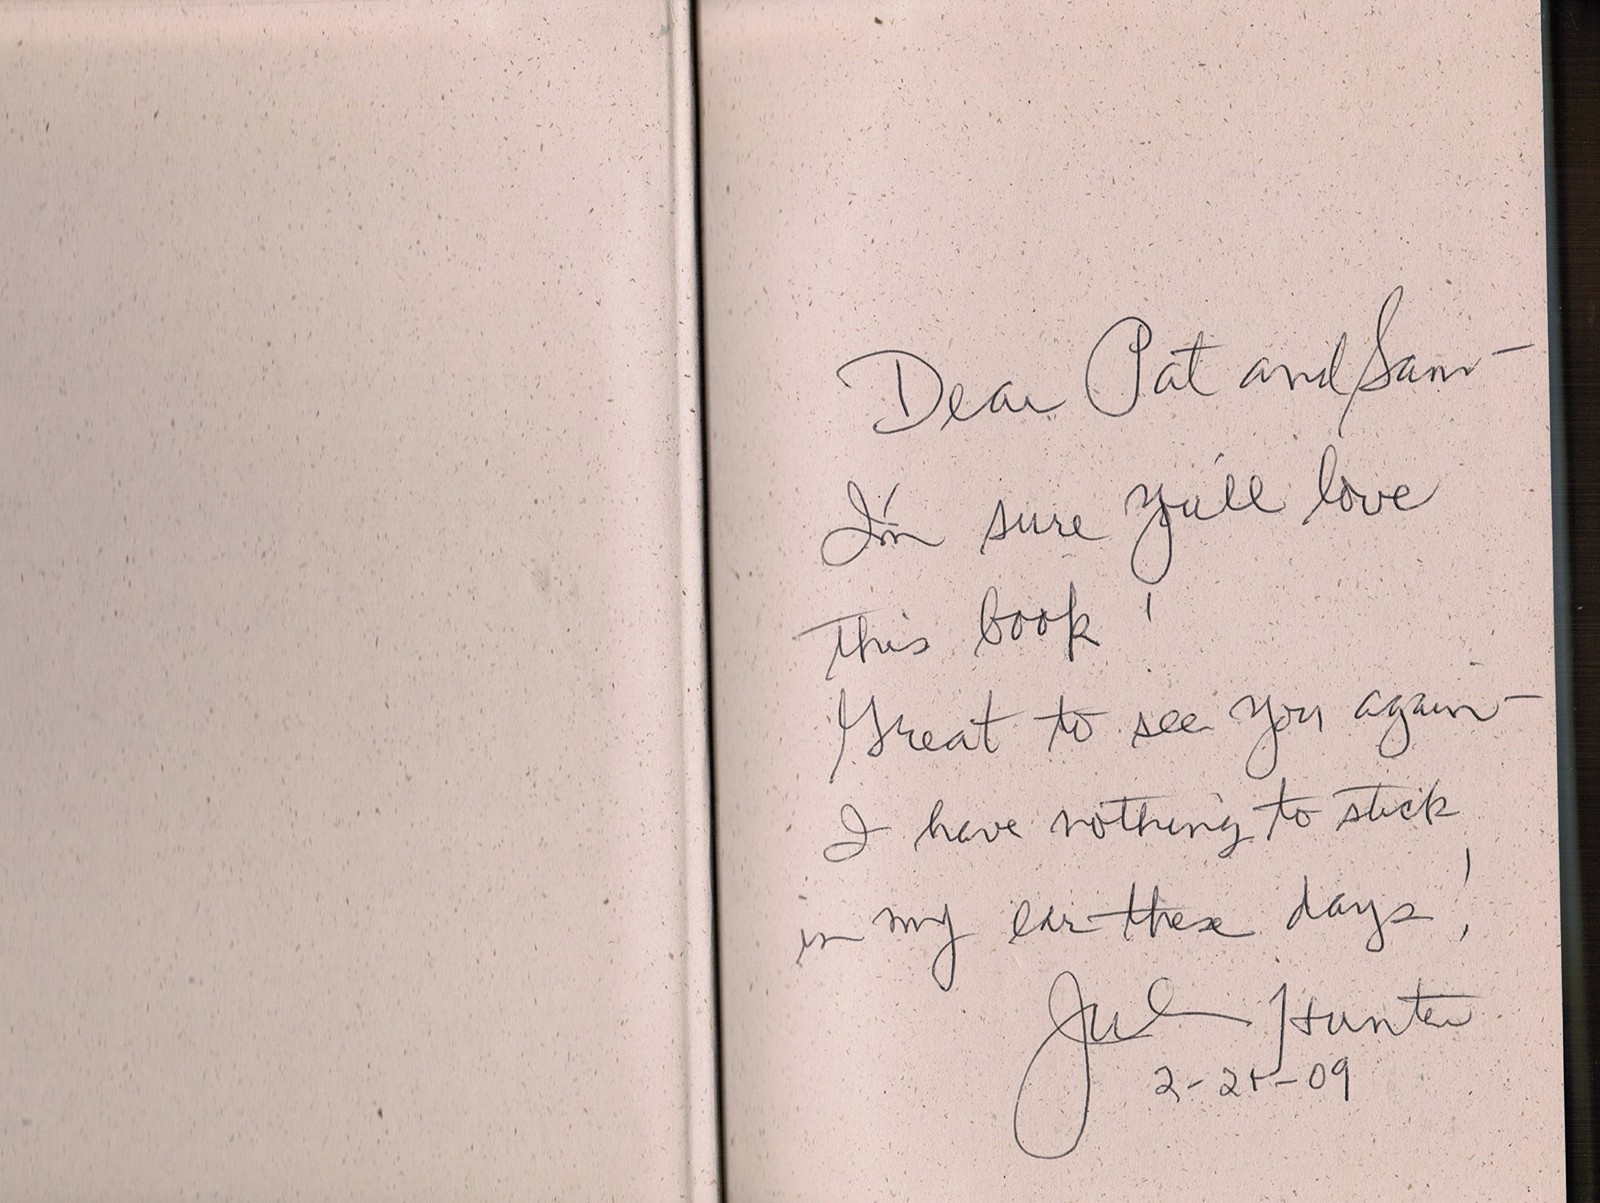 Dear Pat and Sam —
I'm sure you'll love
this book!
Great to see you again —
I have nothing to stick
in my ear these days!
Hunter
2-21-09